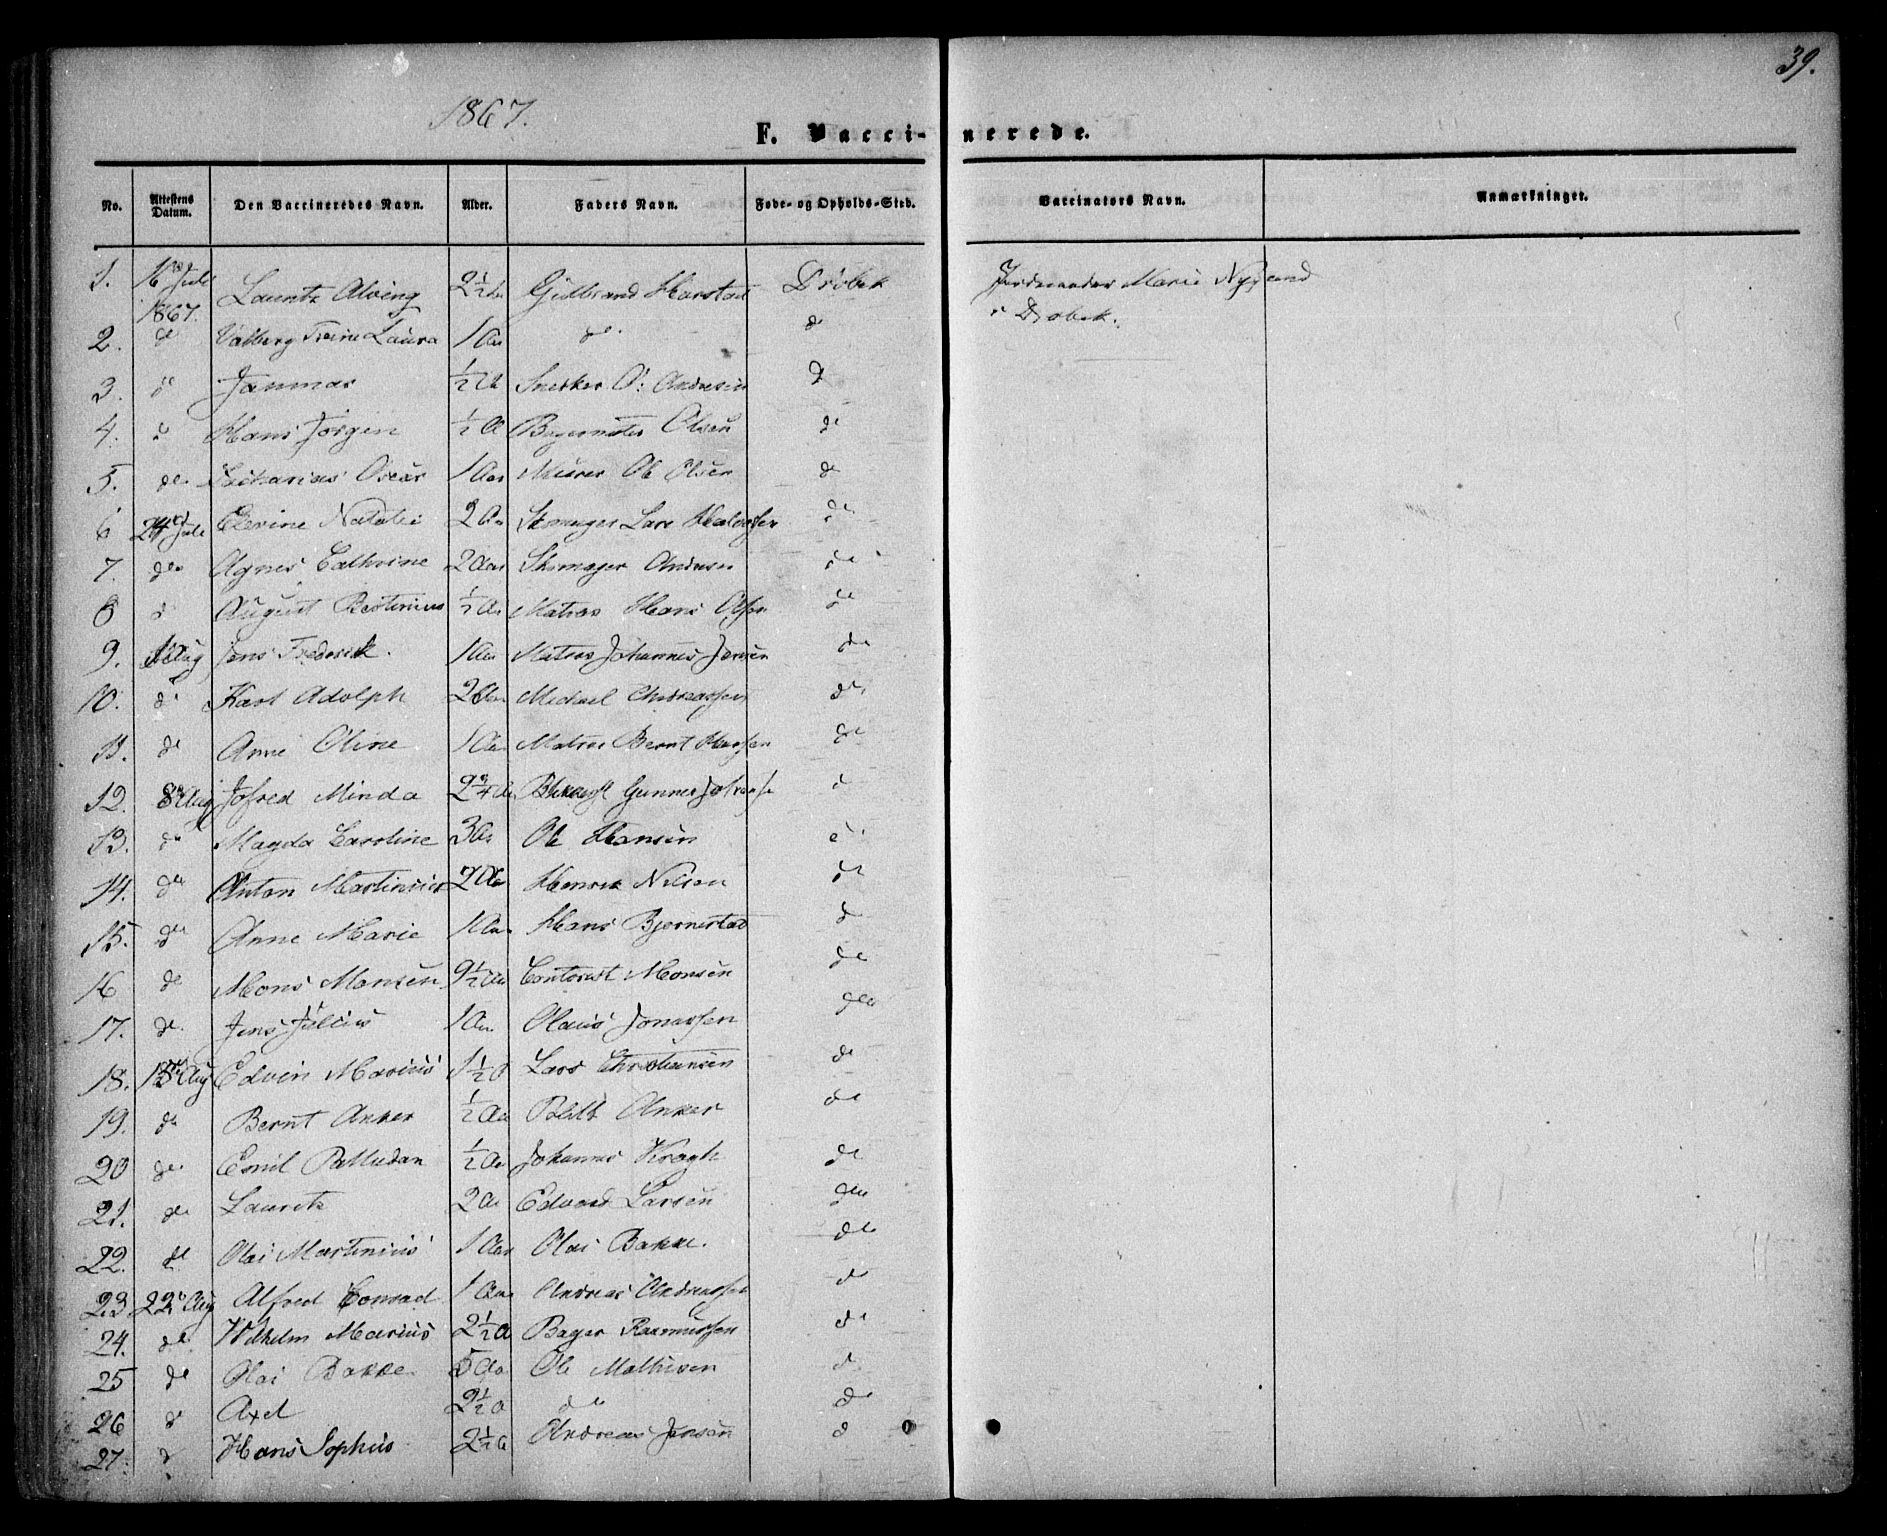 39.
1867.
F. Vaccinerede.
No. Attestens Datum. Den Vaccineredes Navn. Alder. Faders Navn. Føde- og Opholds-Sted. Vaccinators Navn. Anmærkninger.
1. 16 Juli 1867. Lauritz Alving 2½ Aar Gulbrand Harstad Drøbak Jordemoder Marie
i Drøbak.
2. do Valborg Trine Laura 1 Aar do do
3. do Janmar ½ A Snedker O: Andresen do
4. do Hans Jørgen ½ A Olsen do
5. do Oscar 1 Aar Murer Ole Olsen do
6 24 Juli Elevine Natalie 2 Aar Skomager Lars do
7. do Agnes Cathrine 2 Aar Skomager Andresen do
8 do August ½ Aar Matros Hans Olsen do
9. Aug Jens Frederik. 1 Aar Matros Johannes Jensen do
10. do Karl Adolph 2 Aar Michael Andreassen do
11. do Anne Oline 1 Aar Matros Bernt Hansen do
12. 8 Aug Jofred Minda 2¾ Aar Gunner do
13. do Magda Caroline 3 Aar Ole Hansen do
14. do Anton Martinius 2 Aar Henrik Nilsen do
15. do Anne Marie 1 Aar Hans Bjørnestad do
16 do Mons Monsen 9½ Aar Contorist Monsen do
17. do Jens Julius 1 Aar Olaus Jonassen do
18. 15 Aug Edvin Marius 1½ A Lars Christiansen do
19. do Bernt Anker ½ Aar Anker do
20 do Emil Palludan ½ Aar Johannes Kragh do
21. do Lauritz 2 Aar Edvard Larsen do
22. do Olai Martinius 1 Aar Olai Bakke. do
23 22 Aug Alfred Conrad 1 Aar Andreas Andreassen do
24. do Wilhelm Marius 2½ A Bager Rasmussen do
25 do Olai Bakke 5 Aar Ole Mathisen do
26 do Axel 2½ A do do
27. do Hans Sophus 2½ A Andreas Jensen do